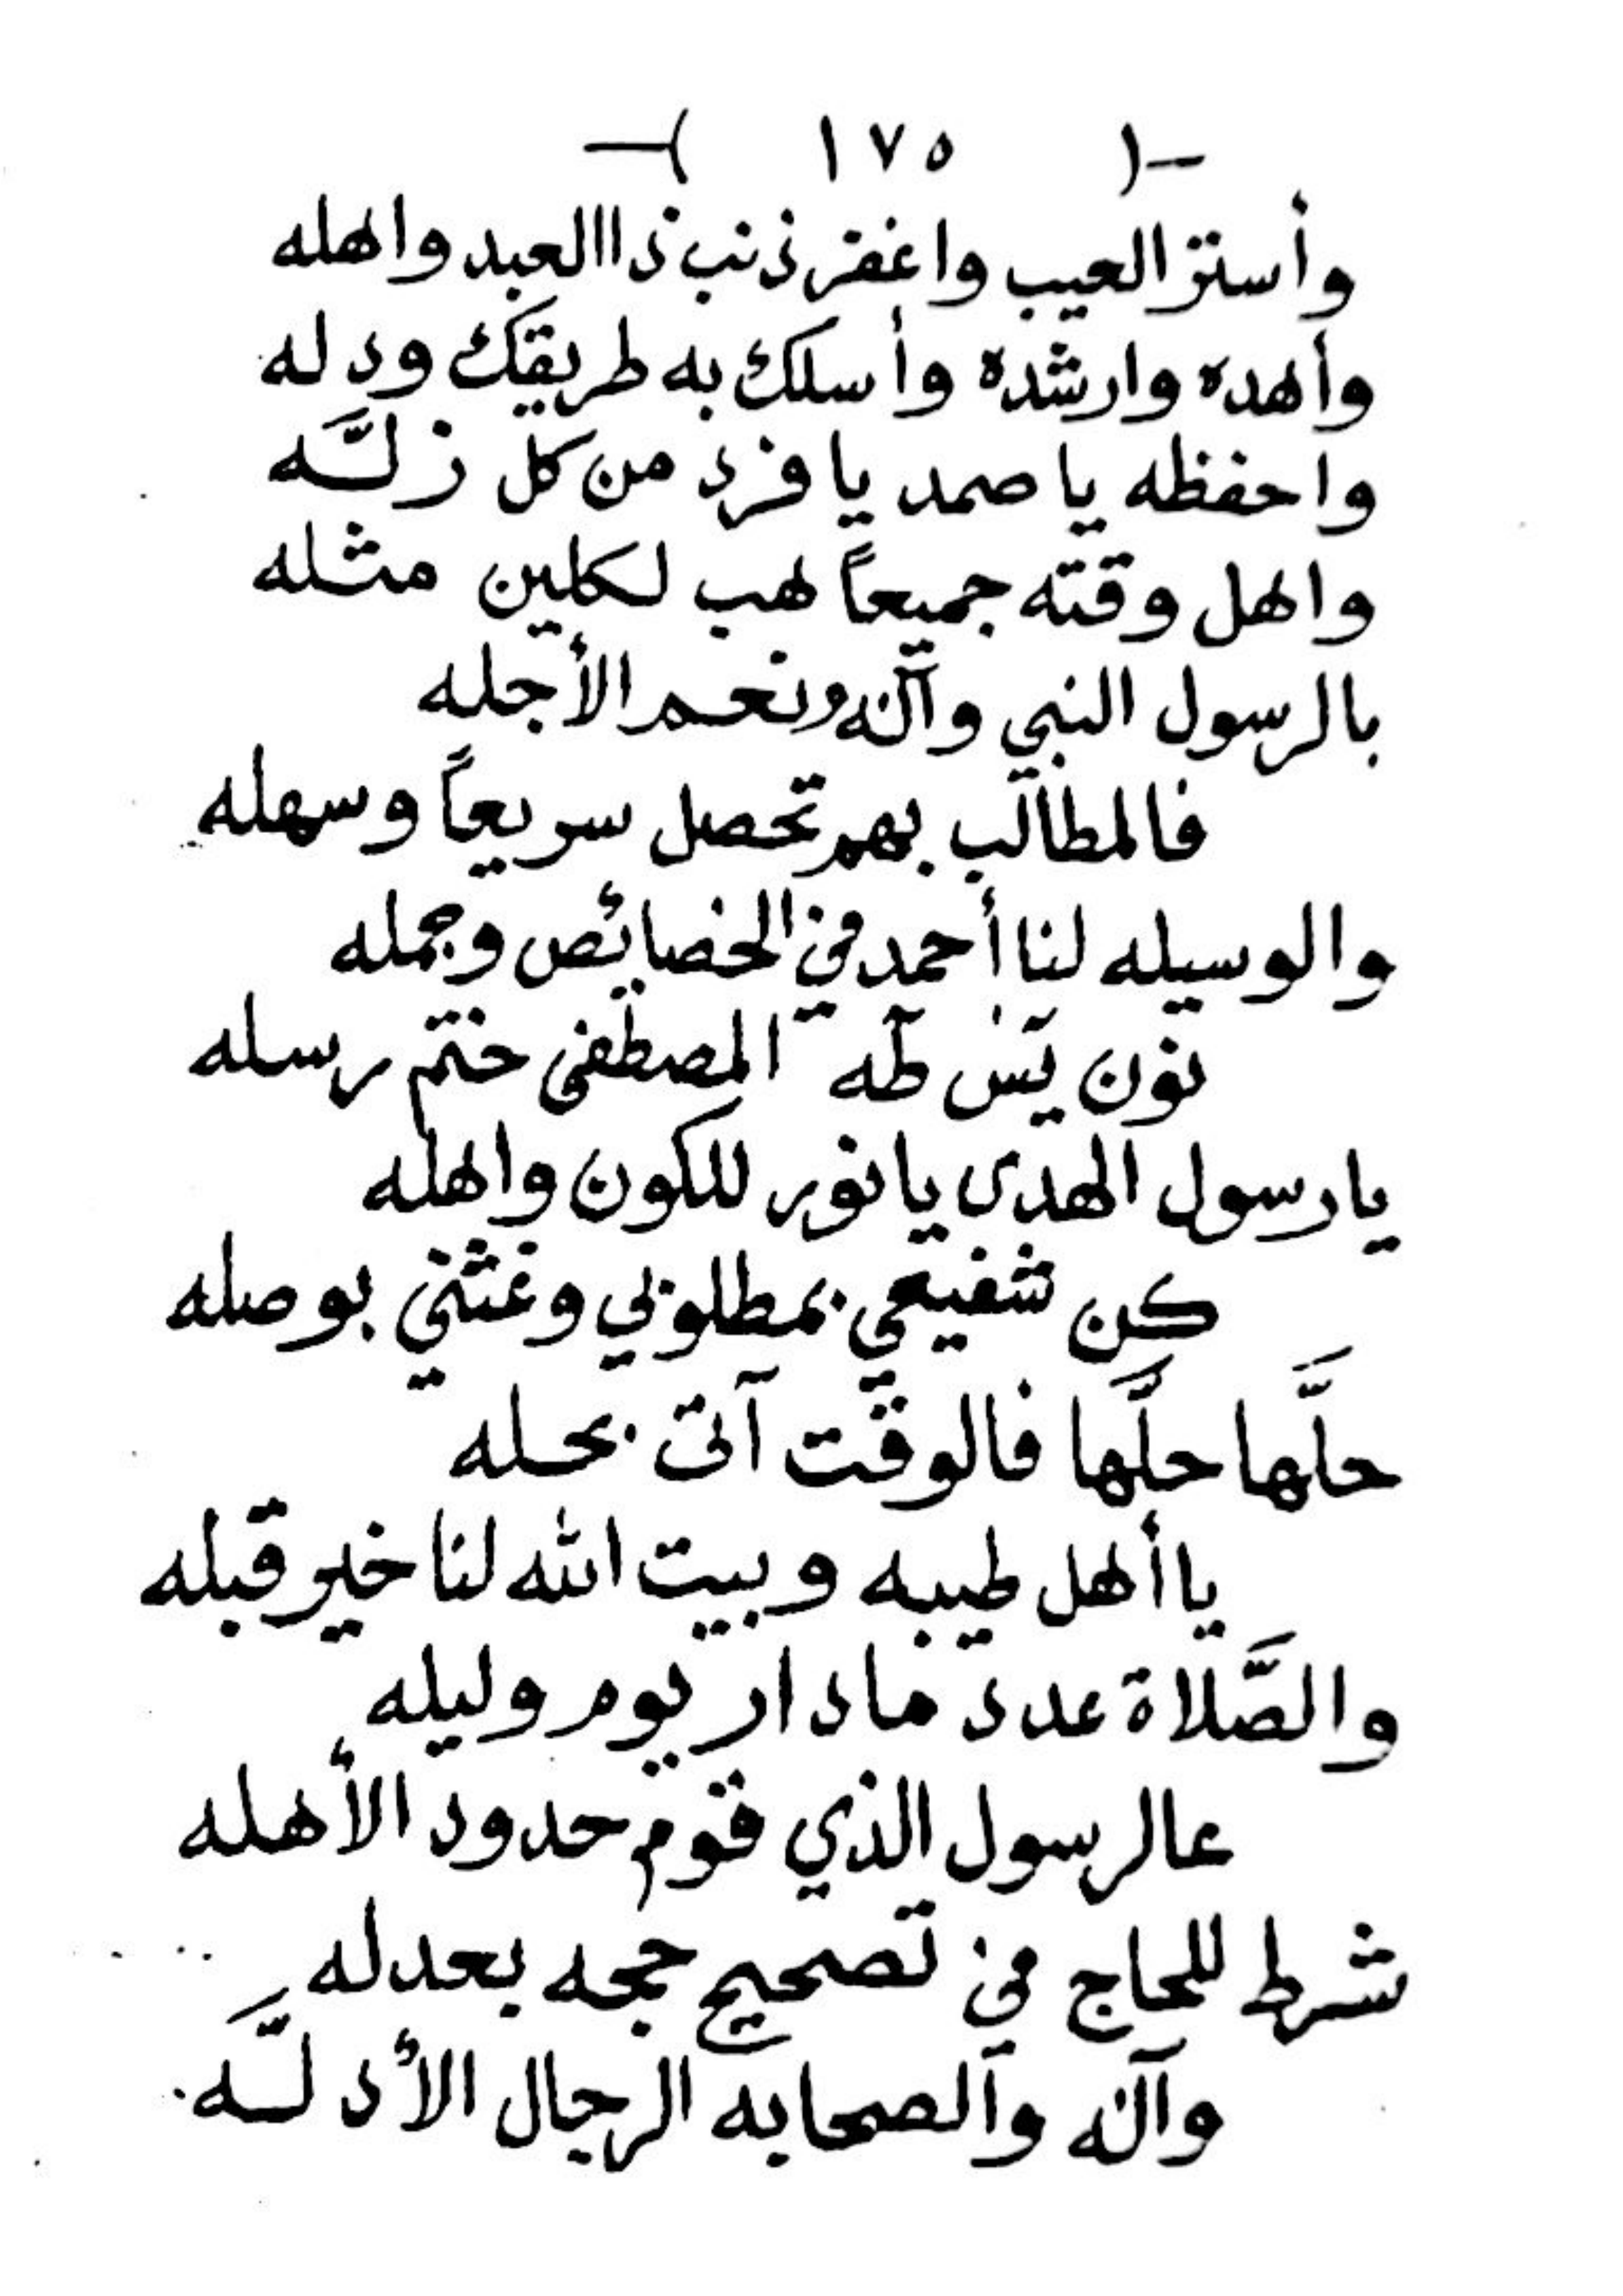 -( ١٧٥ )-
وأستر العيب واغفر ذنب ذا العبد واهله
وأهده وارشده وأسلك به طريقك ودله
واحفظه يا صمد يا فرد من كل زلَّه
واهل وقته جميعاً هب لكلين مثله
بالرسول النبي وآله ونعم الأجله
فالمطالب بهم تحصل سريعاً وسهله
والوسيله لنا أحمد في الخصائص وجمله
نون يٓس طٓه المصطفى ختم رسله
يا رسول الهدى يا نور للكون واهله
كن شفيعي بمطلوبي وغثني بوصله
حلَّها حلَّها فالوقت آتى بحله
يا أهل طيبه وبيت الله لنا خير قبله
والصَّلاة عدد مادار يوم وليله
عالرسول الذي قوم حدود الأهله
شرط للحاج في تصحيح حجه بعدله
وآله والصحابه الرجال الأدلَّه